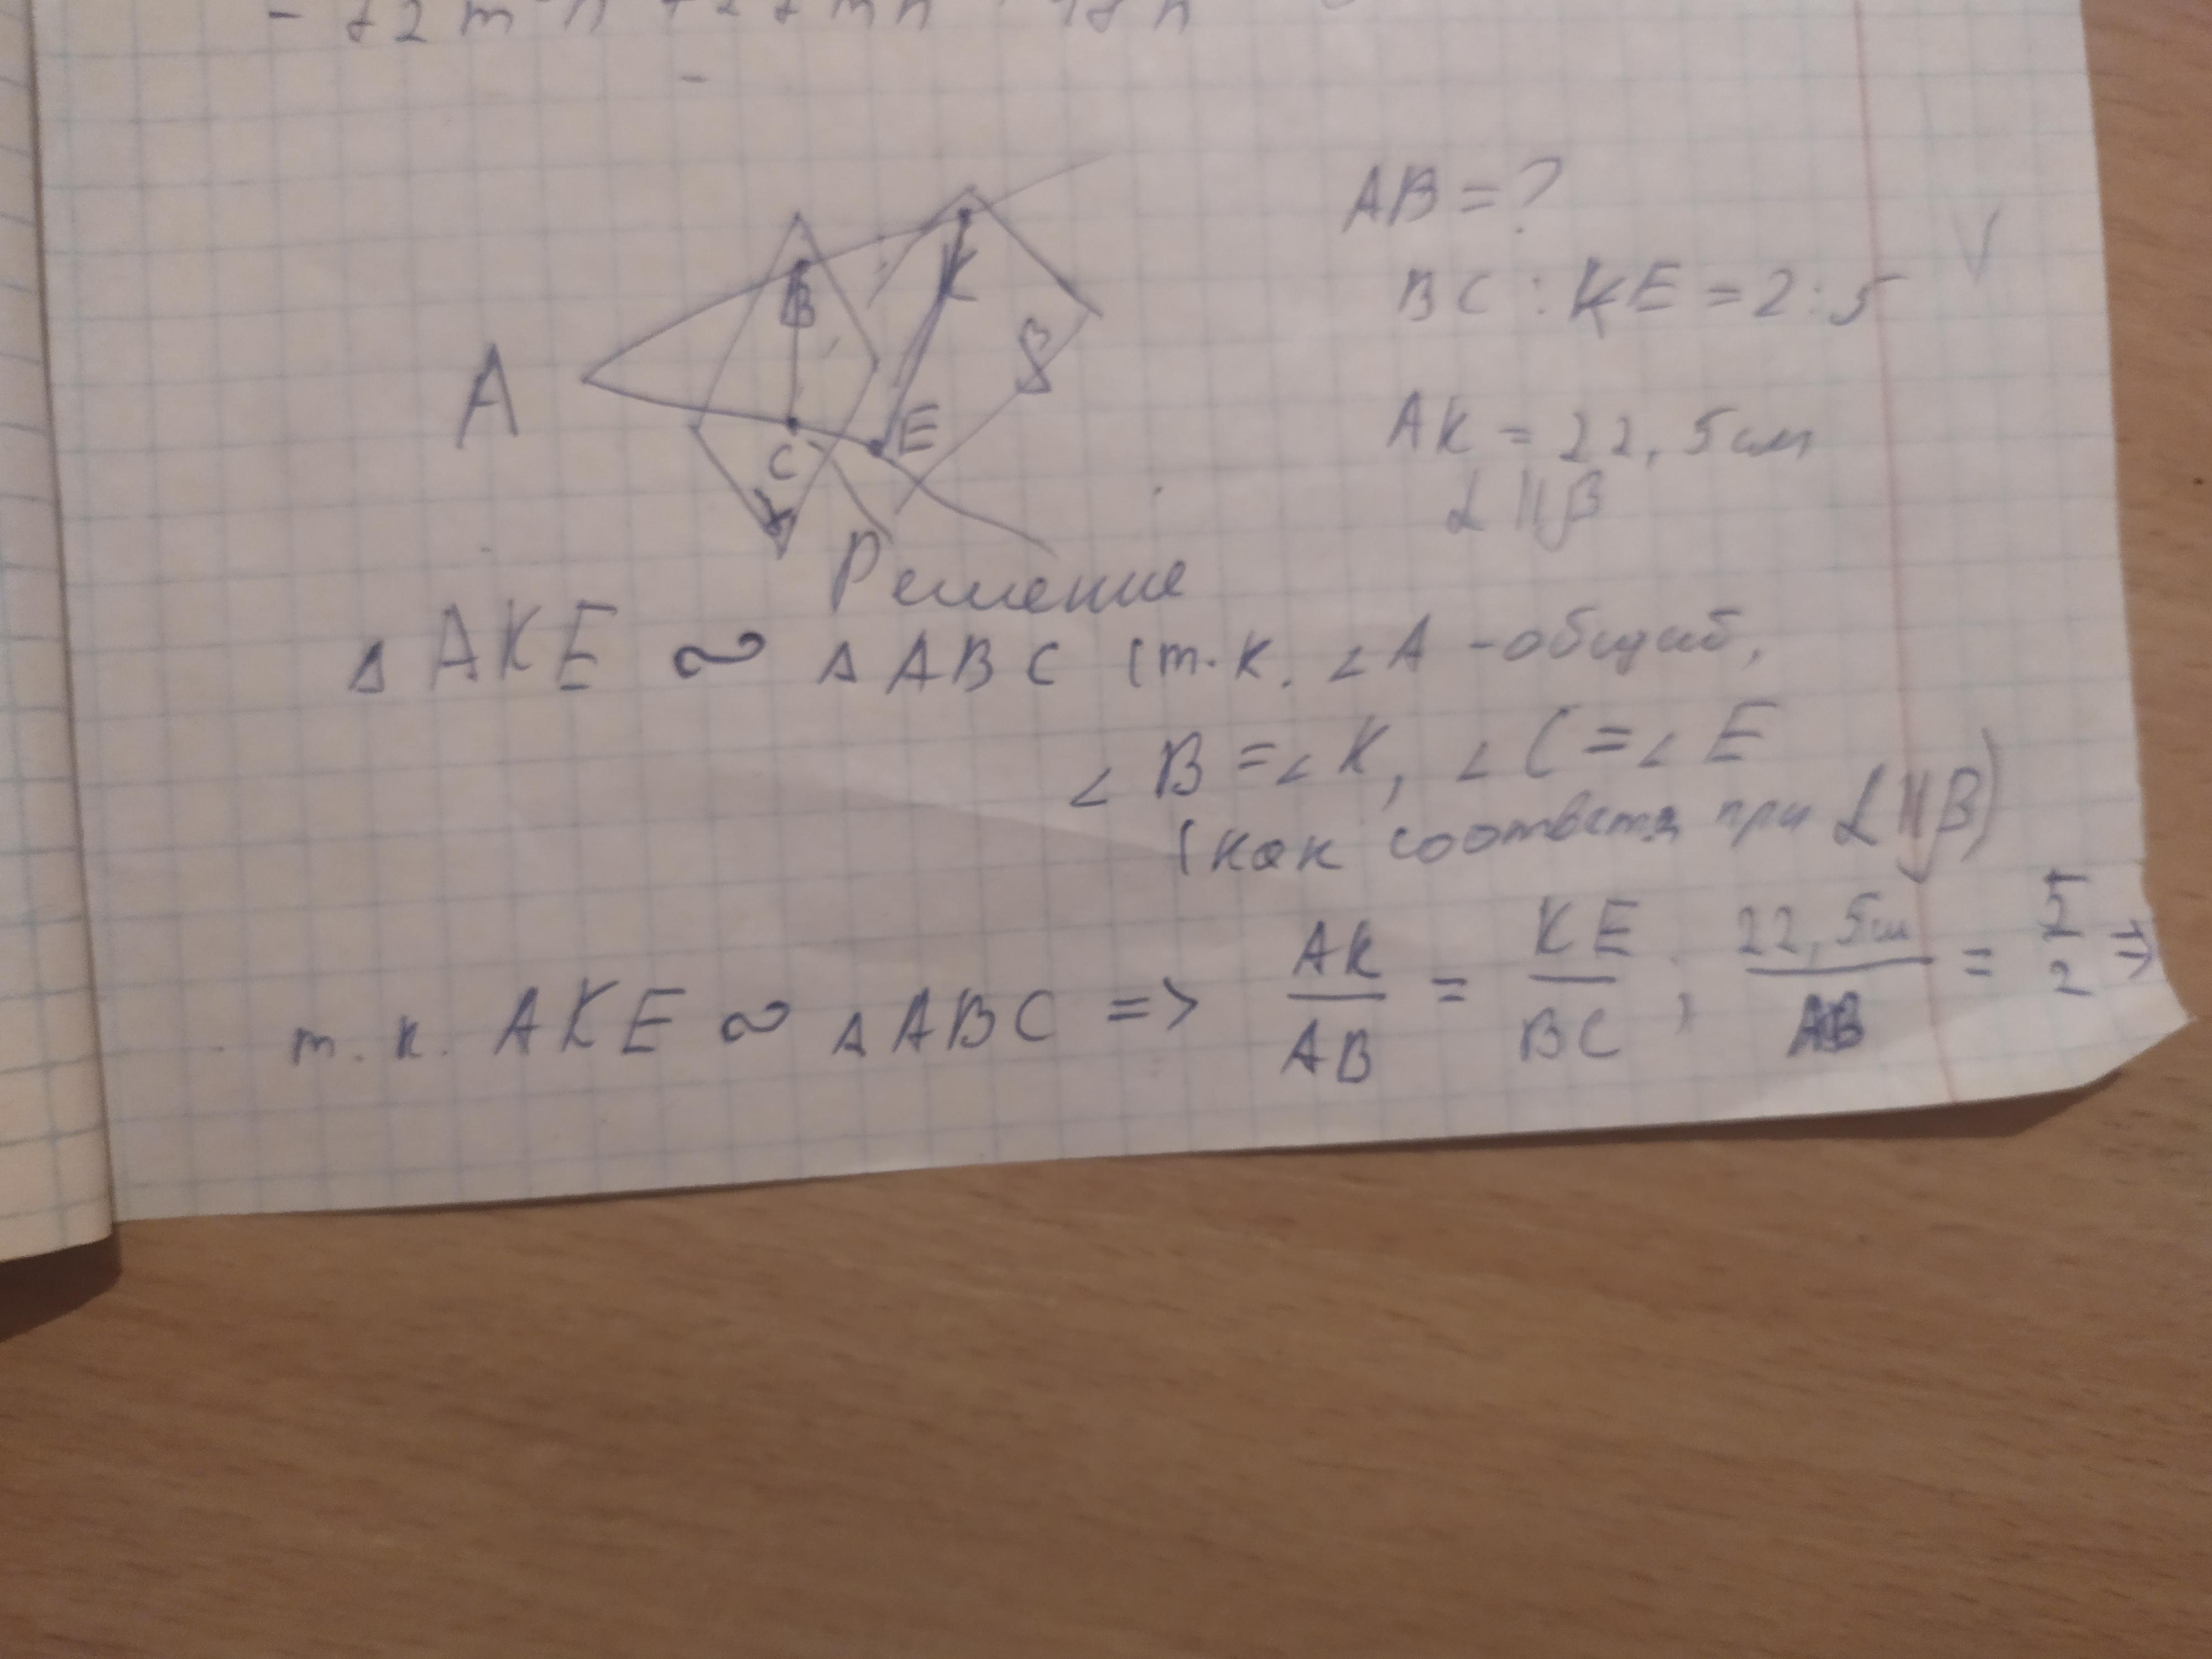 A
B
K
C
E
β
AB = ?
BC : KE = 2 : 5
AK = 22,5 см
α || β
Решение
Δ AKE ∾ Δ ABC (т.к. ∠A - общий,
∠B = ∠K, ∠C = ∠E
(как соответств при α || β)
т.к. AKE ∾ Δ ABC => AK/AB = KE/BC ; 22,5см/AB = 5/2 =>